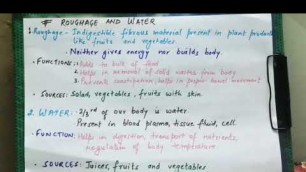 * ROUGHAGE AND WATER
1. Roughage - Indigestible fibrous material present in plant products
like fruits and vegetables
• Neither gives energy nor builds body.
• FUNCTIONS: 1. Adds to bulk of food
2. Helps in removal of solid wastes from body
3. Prevents constipation, helps in proper bowel movement
• Sources: Salad, vegetables, fruits with skin
2. WATER: 2/3rd of our body is water.
Present in blood plasma, tissue fluid, cell
• FUNCTION: Helps in digestion, transport of nutrients,
regulation of body temperature
• SOURCES: Juices, fruits and vegetables